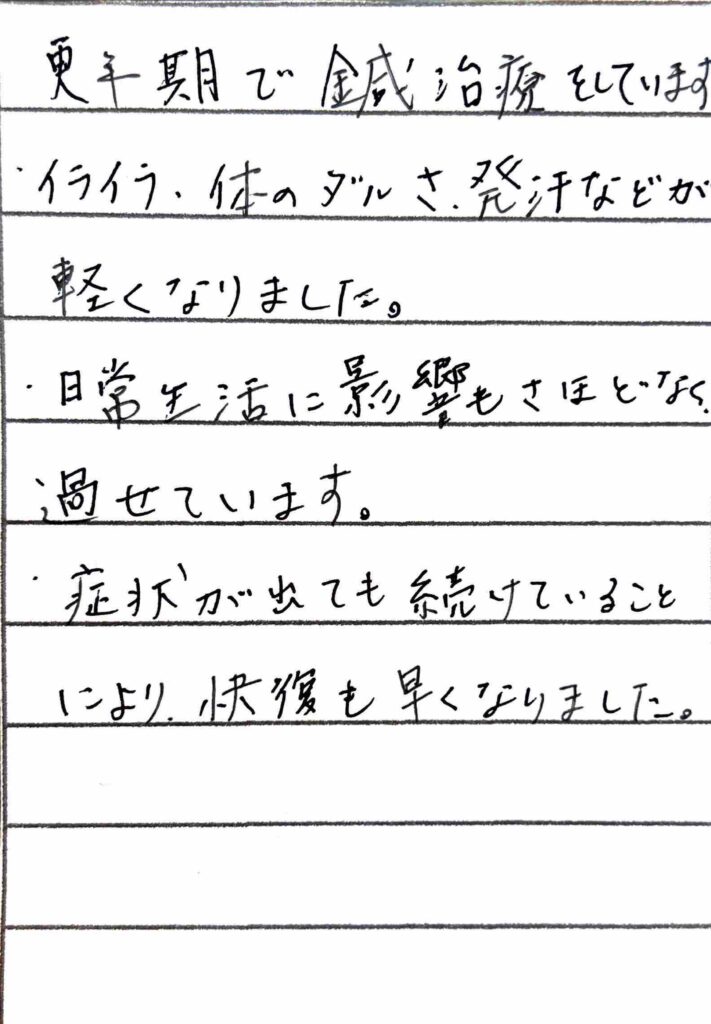 更年期で鍼治療をしています
・イライラ、体のダルさ、発汗などが
軽くなりました。
・日常生活に影響もさほどなく、
過せています。
・症状が出ても続けていること
により、快復も早くなりました。